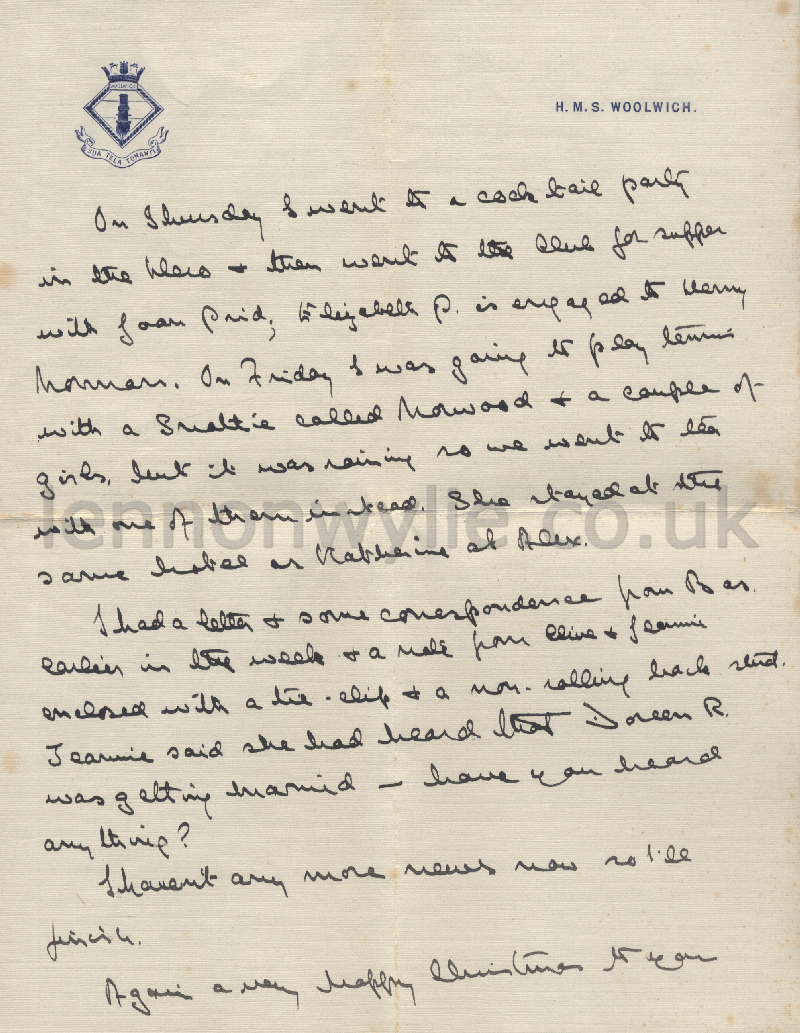 WOOLWICH
SUA TELA TONANTI
H.M.S. WOOLWICH.
On Thursday I went to a cocktail party
in the & then went to the Club for supper
with Joan Prid; Elizabeth P. is engaged to Henry
Norman. On Friday I was going to play tennis
with a Snottie called Norwood & a couple of
girls, but it was raining so we went to tea
with one of them instead. She stayed at the
same hotel as Katherine at Alex.
lennonwylie.co.uk
I had a letter & some correspondence from Bas.
earlier in the week & a note from Clive & Jeannie
enclosed with a tie-clip & a non-rolling back stud.
Jeannie said she had heard that Doreen R.
was getting married — have you heard
anything?
I haven't any more news now so I'll
finish.
Again a very happy Christmas to you